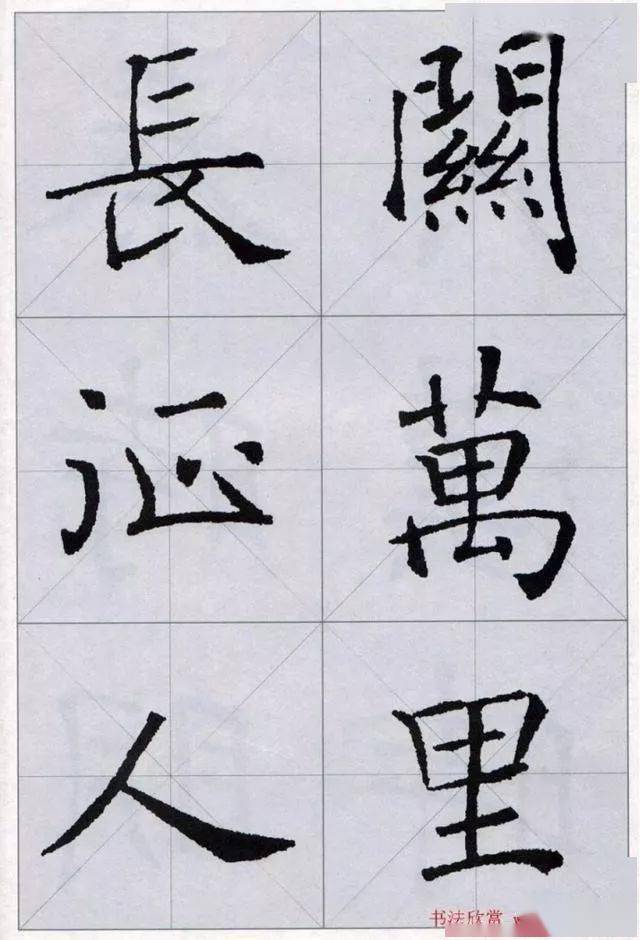 關萬里
長征人
书法欣赏